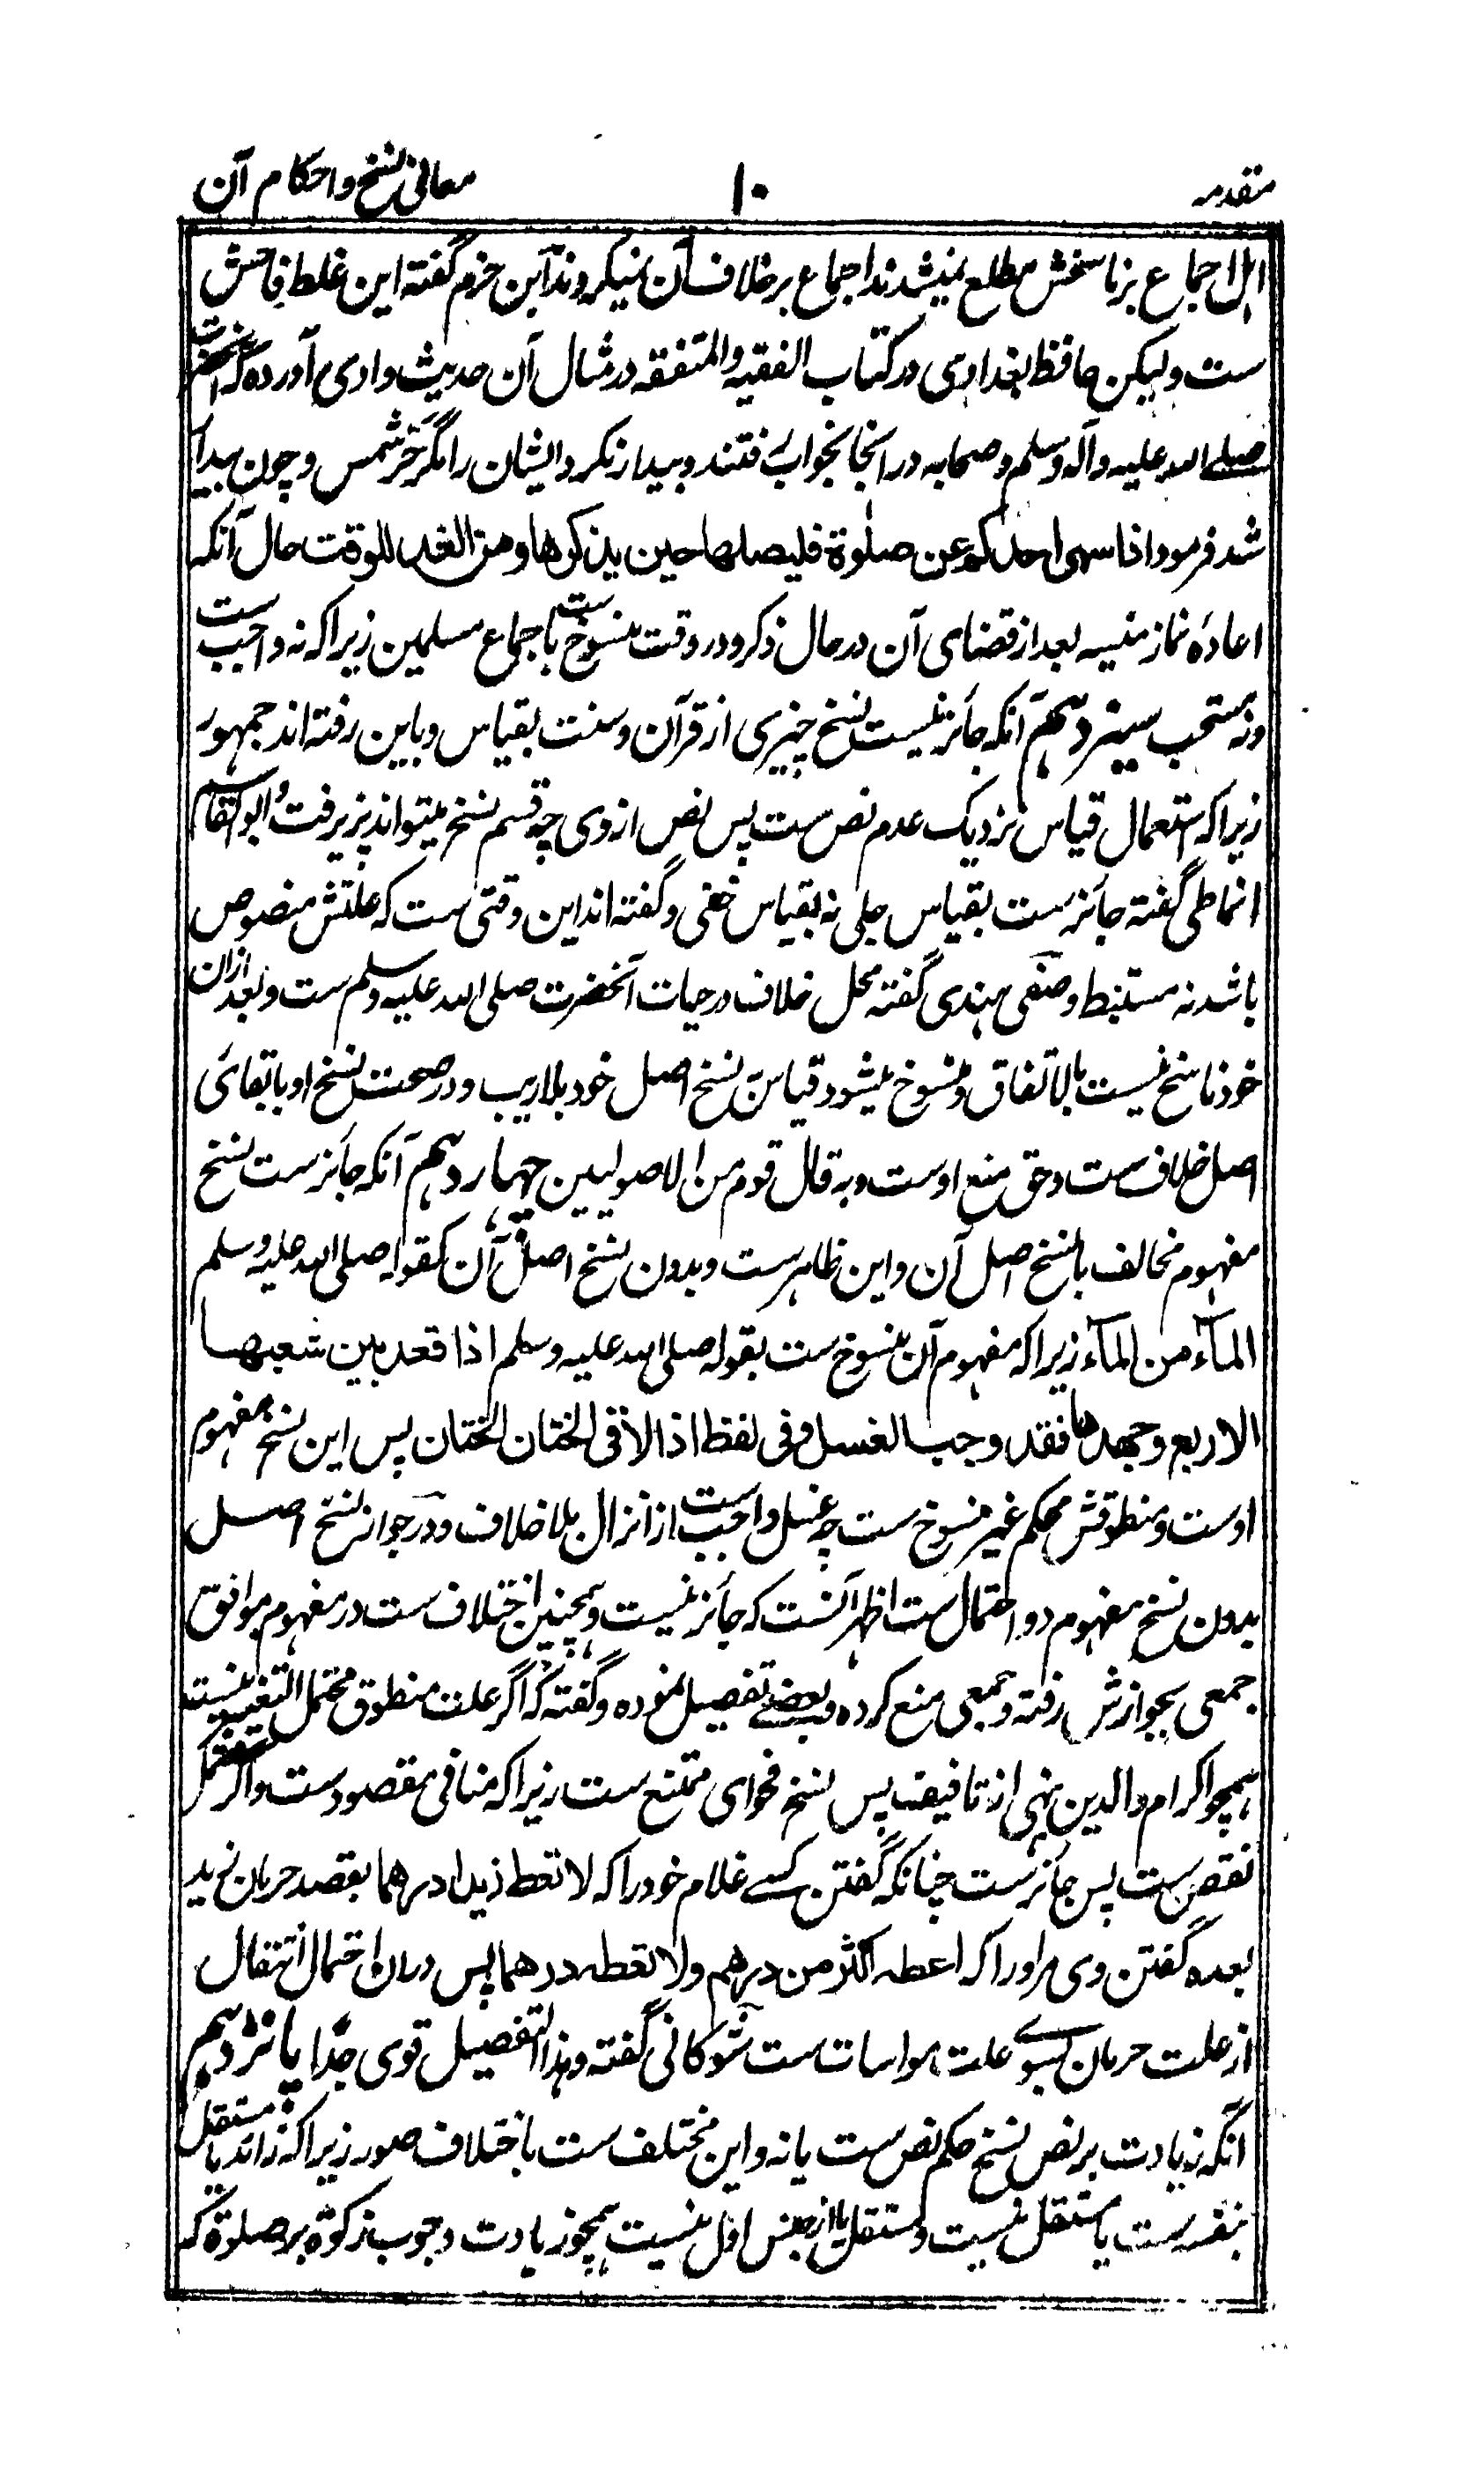 مقدمه ۱۰ معانی نسخ و احکام آن
اہل اجماع بر ناسخش مطلع نمیشدند اجماع بر خلاف آن نمیکردند ابن حزم گفته این غلط فاحش
ست ولیکن حافظ بغدادی در کتاب الفقیه والمتفقه در مثال آن حدیث وادی آورده که آنحضرت
صلے الله علیه وآله وسلم وصحابه در انجا بخواب رفتند و بیدار نکرد ایشان را مگر حَرّ شمس و چون بیدار
شد فرمود اذا سهی احدکم عن صلوٰة فلیصلها حین یذکرها ومن الغد للوقت حال آنکه
اعادۀ نماز منسیه بعد از قضای آن در حال ذکر و در وقت منسوخ ست باجماع مسلمین زیرا که نه واجب ست
ونه مستحب سیزدہم آنکه جائز نیست نسخ چیزی از قرآن وسنت بقیاس وباین رفته اند جمہور
زیرا که استعمال قیاس نزدیک عدم نص ست پس نص از وی چه قسم نسخ میتواند پذیرفت و ابوالقاسم
انماطی گفته جائز ست بقیاس جلی نه بقیاس خفی وگفته اند این وقتی ست که علتش منصوص
باشد نه مستنبط وصفی ہندی گفته محل خلاف در حیات آنحضرت صلی الله علیه وسلم ست وبعد ازان
خود ناسخ نیست بالاتفاق ومنسوخ میشود قیاس بنسخ اصل خود بلاریب ودر صحت نسخ او با بقائ
اصل خلاف ست وحق منع اوست وبه قال قوم من الاصولیین چہاردہم آنکه جائز ست نسخ
مفہوم مخالف با نسخ اصل آن واین ظاہر ست وبدون نسخ اصل آن کقوله صلی الله علیه وسلم
المآء من المآء زیرا که مفہوم آن منسوخ ست بقوله صلی الله علیه وسلم اذا قعد بین شعبها
الاربع وجهدها فقد وجب الغسل وفی لفظ اذا لاقی الختان الختان پس این نسخ مفہوم
اوست ومنطوقش محکم غیر منسوخ ست چه غسل واجب ست از انزال بلاخلاف ودر جواز نسخ اصل
بدون نسخ مفہوم دو احتمال ست اظہر آنست که جائز نیست وہمچنین اختلاف ست در مفہوم موافق
جمعی بجوازش رفته وجمعی منع کرده وبعضے تفصیل نموده وگفته که اگر علت منطوق محتمل التغییر نیست
ہمچو اکرام والدین بنہی از تافیف پس نسخ فحوای ممتنع ست زیرا که منافی مقصود ست واگر محتمل
نقض ست پس جائز ست چنانکه گفتن کسے غلام خود را که لا تعط زیدا درهما بقصد حرمان زید
بعده گفتن وی مر اورا که اعطه اکثر من درهم ولا تعطه درهما پس دران احتمال انتقال
از علت حرمان بسوے علت مواسات ست شوکانی گفته وہذا التفصیل قوی جدّا پانزدہم
آنکه زیادت بر نص نسخ حکم نص ست یا نه واین مختلف ست باختلاف صور زیرا که زائد یا مستقل
بنفسه ست یا مستقل نیست ومستقل یا از جنس اول نیست ہمچو زیادت وجوب زکوٰة بر صلوٰة که